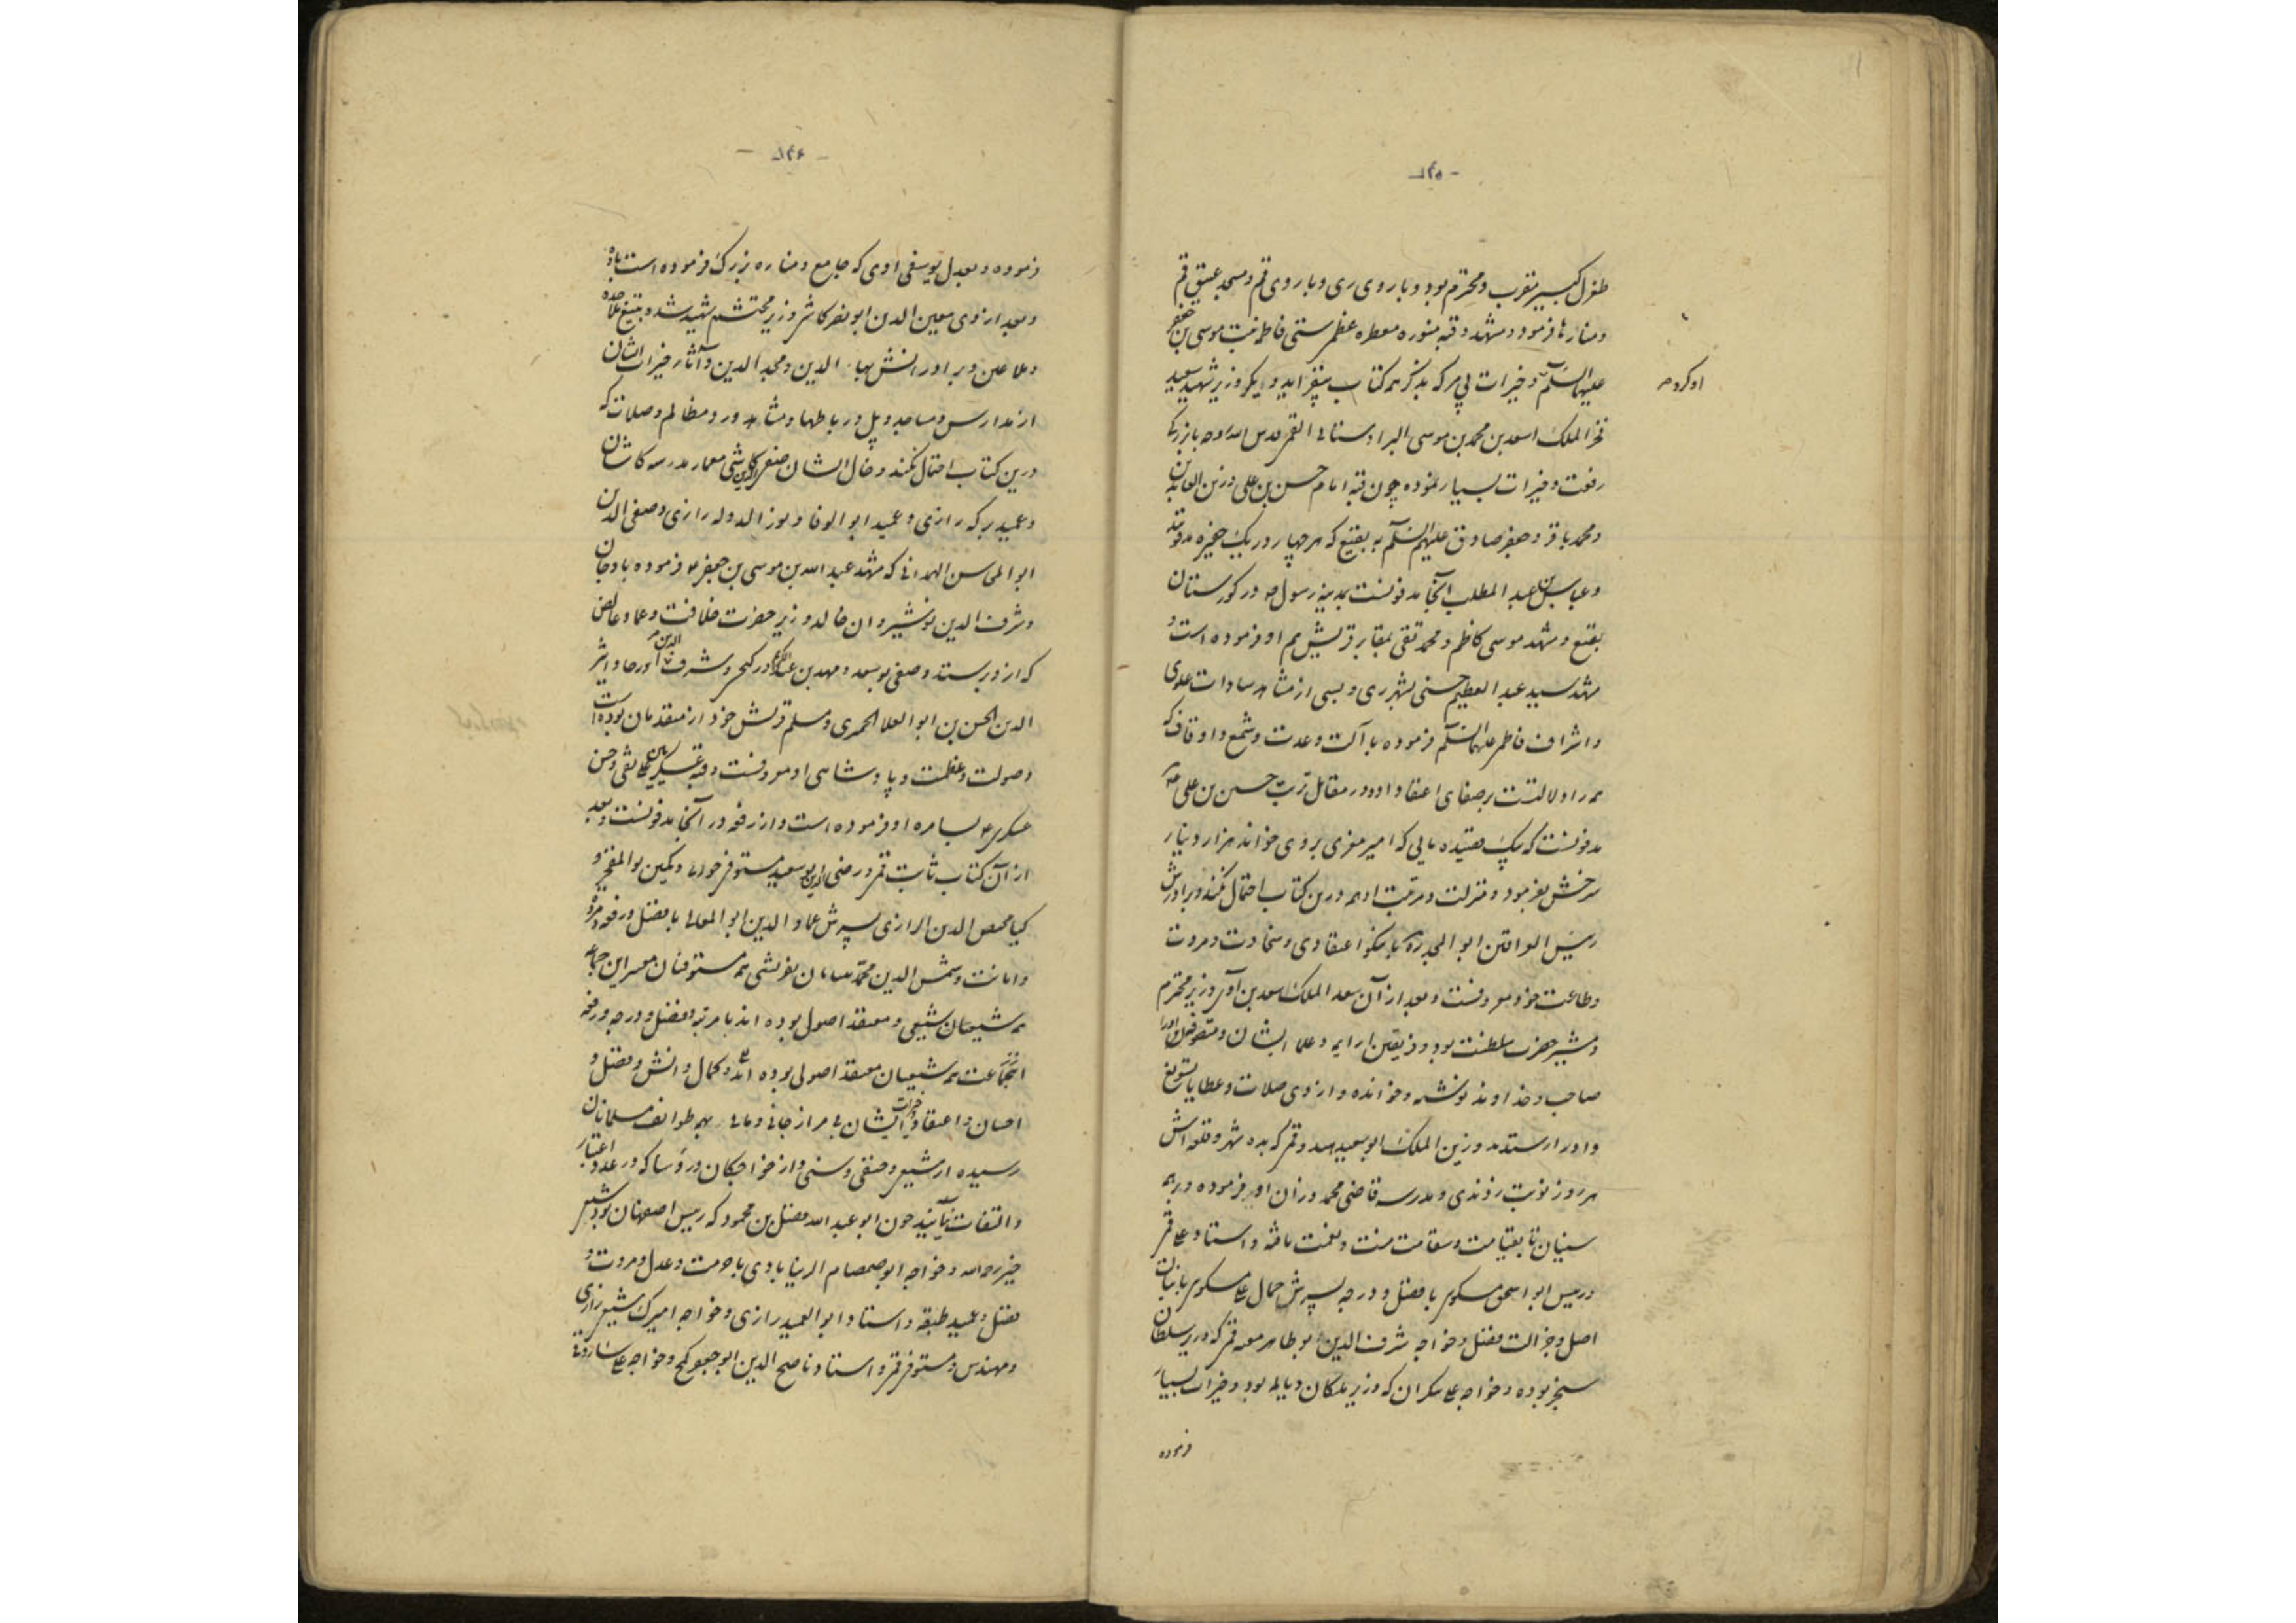 - ۱۴۵ -
طغرل کبیر مقرب و محترم بود و باروی ری و باروی قم و مسجد عتیق قم
و منارها فرمود و مشهد و قبه منوره معطره ستی فاطمه بنت موسی بن جعفر
علیهما السلم او کرده و خیرات بی مر که بذکر همه کتاب بیفزاید و دیگر وزیر شهید سعید
فخر الملک اسعد بن محمد بن موسی البراوستانی القمی قدس الله روحه با بزرگی
رفعت و خیرات بسیار نموده چون قبه امام حسن بن علی و زین العابدین
و محمد باقر و جعفر صادق علیهم السلم به بقیع که هر چهار در یک حفره مدفونند
و عباس بن عبد المطلب آنجا مدفونست بمدینه رسول در کورستان
بقیع و مشهد موسی کاظم و محمد تقی بمقابر قریش هم او فرموده است و
مشهد سید عبد العظیم حسنی بشهر ری و بسی از مشاهد سادات علوی
و اشراف فاطمی علیهم السلم فرموده با آلت و عدت و شمع و اوقاف که
همه را دلالتست بر صفای اعتقاد او و در مقابل تربت حسین بن علی
مدفونست که یک قصیده یایی که امیر معزی بروی خواند هزار دینار
سرخش بفرمود و منزلت و مرتبت او همه درین کتاب احتمال نکند و برادرش
رییس ابو المجد با نیکو اعتقادی و سخاوت و مروت
و طاعت خود معروفست و بعد از آن سعد الملک سعد بن آوی وزیر محترم
و مشیر حضرت سلطنت بود و فریقین را رایه و علما ایشان و متصوفه او را
صاحب و خداوند نوشته و خوانده و از وی صلات و عطایا
و ادرار ستده و زین الملک ابو سعد هندو قمی که بده شهر و قلعه اش
هر روز نوبت زدندی و مدرسه قاضی محمد وزان او فرموده و بر همه
سنیان تا بقیامت منت و نعمت یافته و استاد علی قمی
و رییس ابو اسحق مسکوی با فضل و درجه پسرش جمال علی مسکوی با نباهت
اصل و جزالت فضل و خواجه شرف الدین بوطاهر قمی که وزیر سلطان
سنجر بوده و خواجه علی که وزیر ملکان دیالمه بود و خیرات بسیار
فرموده
- ۱۴۶ -
فرموده و بعدل یوسفی اوی که جامع و مناره بزرگ فرموده است باوه
و بعد از وی معین الدین ابو نصر کاشی وزیر محتشم شهید شد و بتیغ ملاحده
ملاعین و برادرانش بهاء الدین و مجد الدین و آثار خیرات ایشان
از مدارس و مساجد و پل و رباطها و مشاهد و رد مظالم و صلات که
درین کتاب احتمال نکند و خال ایشان صفی الدین کاشی معمار مدرسه کاشان
و عمید برکه رازی و عمید ابو الوفا و نور الدوله رازی و صفی الدین
ابو المحاسن الهمدانی که مشهد عبد الله بن موسی بن جعفر فرموده باوجان
و شرف الدین نوشیروان خالد وزیر حضرت خلافت و
الدین الحسن بن ابو العلا الحمیری و مسلم قریش خود از متقدمان بوده است
و صولت و عظمت و پادشاهی او معروفست و قبه عسکریین علی نقی و حسن
عسکری بسامره او فرموده است و ارزقه در آنجا مدفونست و بعد
از آن کتاب ثابت قمی و رضی الدین بو سعید مستوفی
کیا مخلص الدین الرازی پسرش عماد الدین ابو المعالی با فضل و رفعه و مروة
و امانت و شمس الدین محمد تفرشی همه مستوفیان معتبر این جماعه
همه شیعیان شیعی و معتقد اصول بوده اند با مرتبه و فضل و درجه و رفعه
جماعت همه شیعیان معتقد اصولی بوده اند و کمال دانش و فضل و
احسان و اعتقاد و خیرات ایشان بی مر از جانی و مالی بهمه طوایف مسلمانان
رسیده از شیعی و حنفی و سنی و از خواجگان و رؤسا که در عدد و اعتبار
و التفات نیایند چون ابو عبد الله مفضل بن محمود که رییس اصفهان بود شیعی
خیر رحمه الله و خواجه ابو صمصام الرینابادی با حرمت و عدل و مروت و
فضل و عمید طبقه و استاد ابو العمید رازی و خواجه امیرک شیعی رازی
و مهندس و مستوفی قمی و استاد ناصح الدین ابو جعفر و خواجه علی